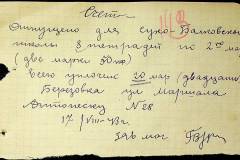 Счет
Отпущено для Сухо-Балковской
школы 8 тетрадей по 2 50 мар
(две марки 50 пф)
Всего уплочено 20 мар (двадцать)
Березовка ул Маршала
Антонеску № 28
17/VIII-43г.
Зав маг